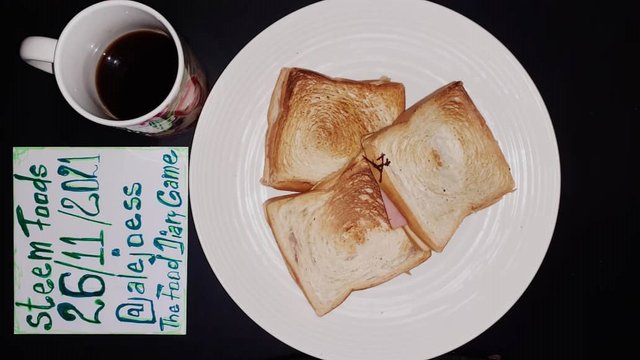 steem Foods
26/11/2021
@alejoess
The Food Diary Game